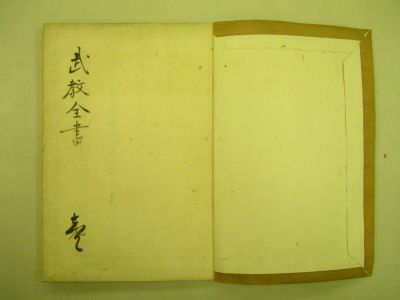 武教全書
壱